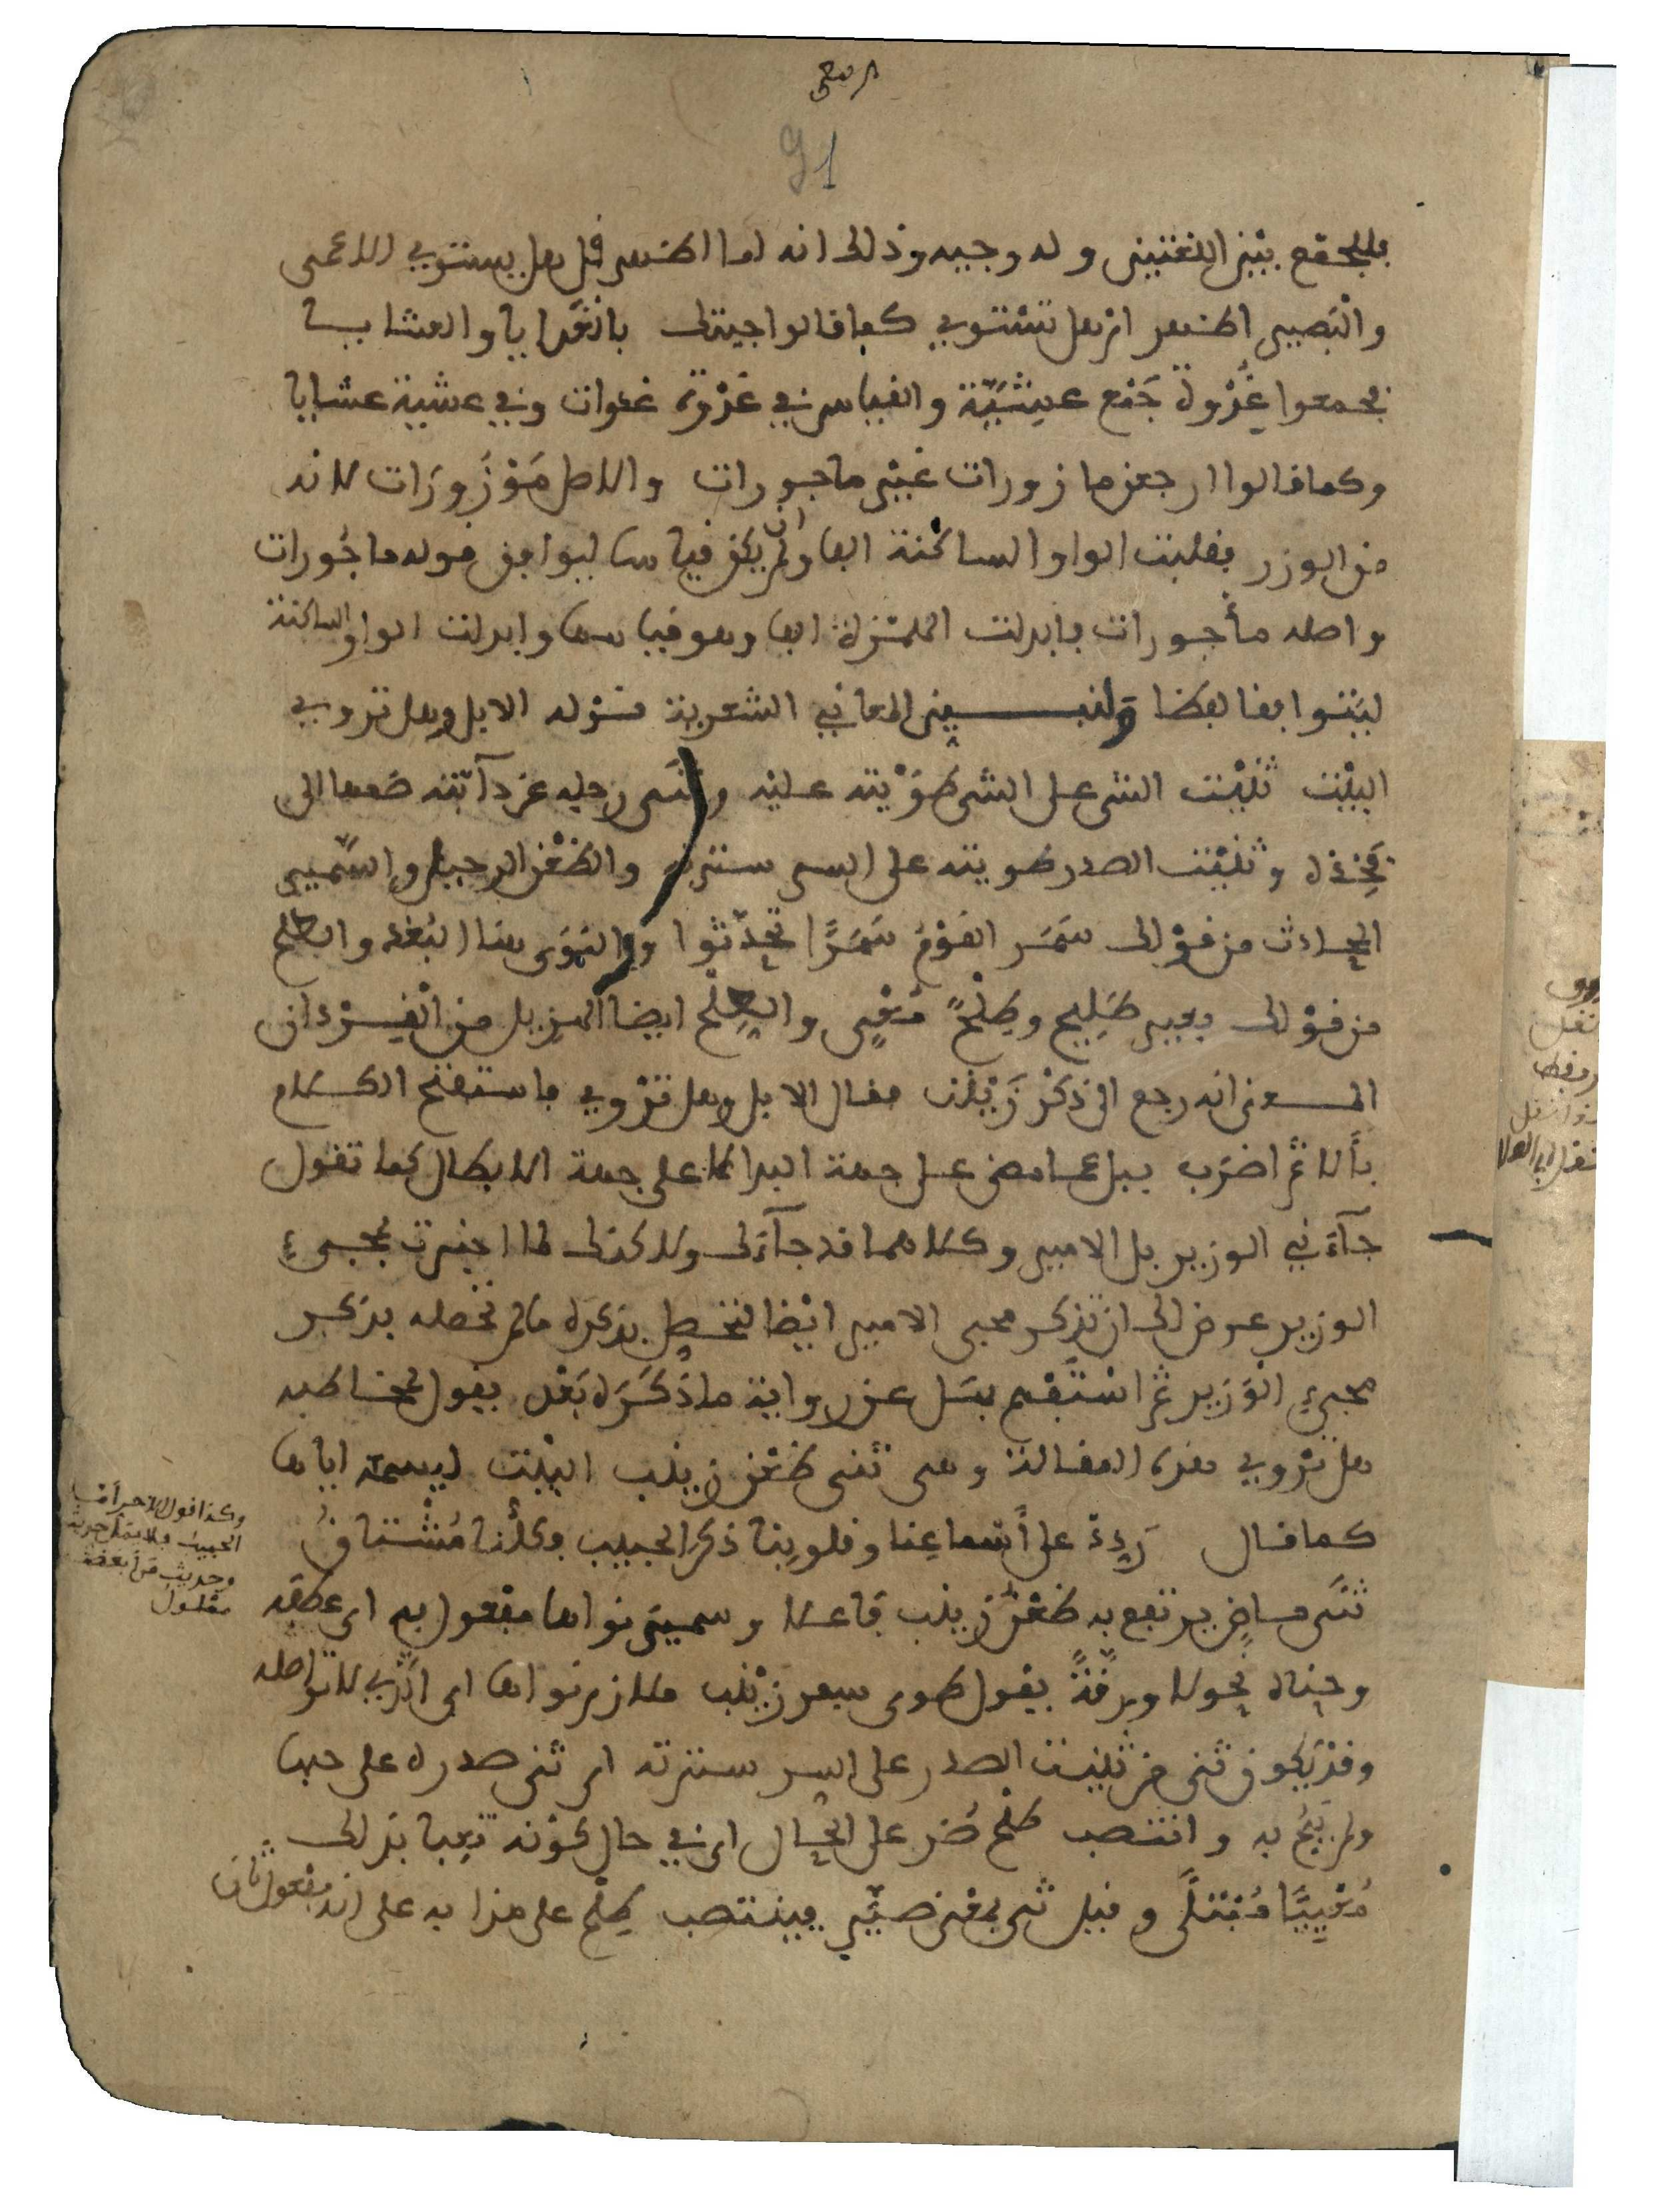 91
فللجمع بين اللغتين وله وجيه وذلك انه اما اظهر قبل هل يستوي الاعمى
والبصير اظهر ام هل تستوي كما قالوا جيتك بالغدايا والعشايا
فجمعوا غدوة جمع عشية والقياس في غدوة غدوات وفي عشية عشايا
وكما قالوا ارجعن مازورات غير ماجورات والاصل موزورات لانه
من الوزر فقلبت الواو الساكنة الفا وان لم يكن قياسا ليوافق قوله ماجورات
واصله مأجورات فابدلت الهمزة الفا وهو قياسها وابدلت الواو الساكنة
ليتوافقا لفظا ولنبين المعاني الشعرية قوله الا بل وهل تروي
البيت ثنيت الشي على الشي طويته عليه وثنى رجله عن دآبته ضمها الى
فخذه وثنيت الصدر طويته على السر سترته والظعن الرحيل والسمير
الحادث من قولك سمر القوم سمرا تحدثوا والنوى هنا البعد والطلح
من قولك بعير طليح وطلح معيى والطلح ايضا المهزيل من القردان
المعنى انه رجع الى ذكر زينب فقال الا بل وهل تروي فاستفتح الكلام
بألا ثم اضرب ببل عما مضى على جهة البدا لا على جهة الابطال كما تقول
جآءني الوزير بل الامير وكلاهما قد جآءك ولاكنك لما اخبرت بمجيء
الوزير عرض لك ان تذكر مجيء الامير ايضا لتحصل بذكره ما لم تحصله بذكر
مجيء الوزير ثم استفهم بهل عن رواية ما ذكره بعد يقول لمخاطبه
هل تروي هذه المقالة وهي ثنى ظعن زينب البيت ليسمعه اياها
كما قال ردد على أسماعنا وقلوبنا ذكر الحبيب فكلنا مشتاق
ثنى ماض يرتفع به ظعن زينب فاعلا وسمير نواها مفعول به اي عطفه
وحناه نحولا ورقة يقول طوى سفر زينب ملازم نواها اي الذي لا تواصله
وقد يكون ثنى من ثنيت الصدر على السر سترته اي ثنى صدره على حبها
ولم يبح به وانتصب طلح ضر على الحال اي في حال كونه تعبا بذلك
معييا مبتلى وقيل ثنى بمعنى صير فينتصب طلح على هذا به على انه مفعول ثان
وكذا قول الاخر أما
الحبيب فلا يمل حديثه
وحديث من ابغضته
مملول